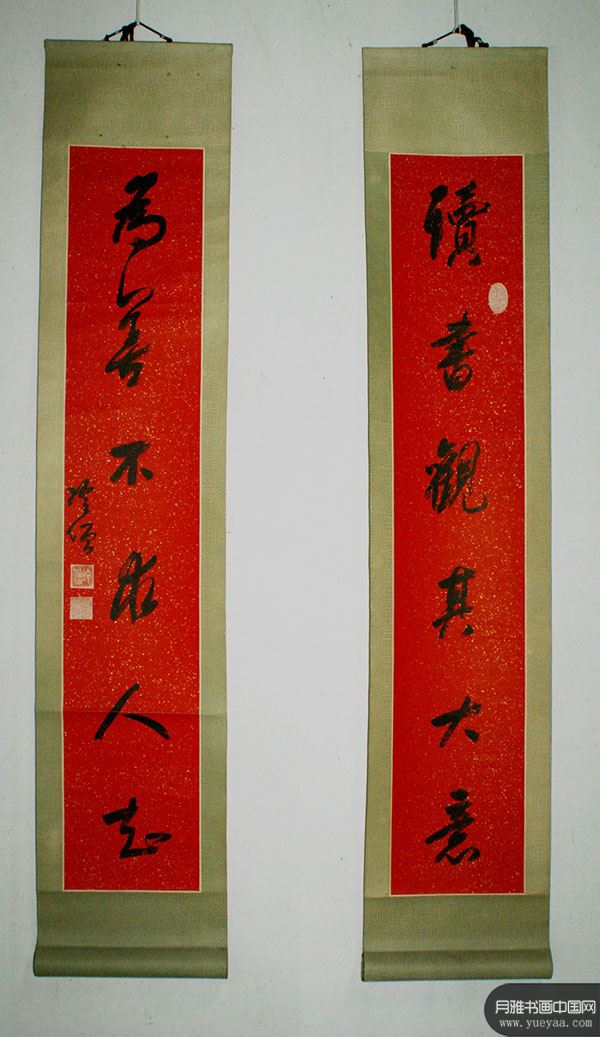 讀書觀其大意
為善不求人知
冷僧
月雅书画中国网
www.yueyaa.com